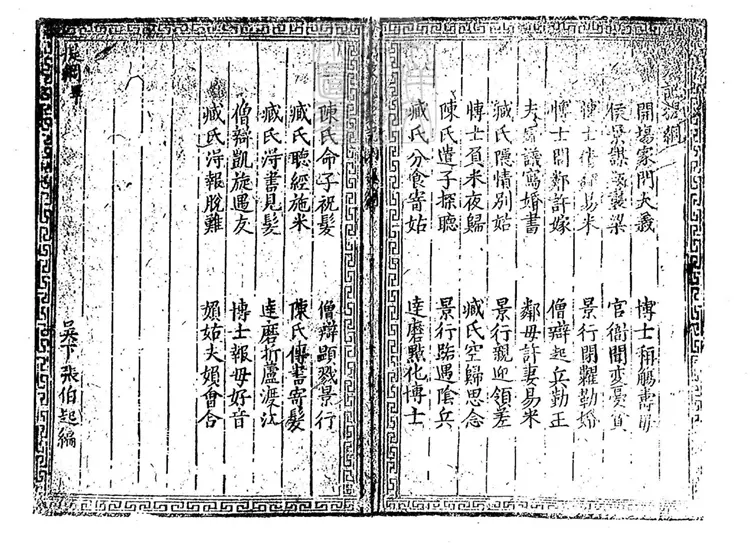 記提綱
開場家門大義 博士稱觴壽母
侯景謀逆襲梁 官衙聞變憂
博士 易米 景行閉糴勒婚
博士聞 許嫁 僧辯起兵勤王
夫 議寫婚書 鄰母許妻易米
臧氏隱情別姑 景行親迎領差
博士負米夜歸 臧氏空歸思念
陳氏遣子探聽 景行路遇陰兵
臧氏分食寄姑 達磨點化博士
陳氏命子祝髮 僧辯顯戮景行
臧氏聽經施米 陳氏傳書寄髮
臧氏得書見髮 達磨折蘆渡江
僧辯凱旋遇友 博士報母好音
臧氏得報脫難 媍姑夫媍會合
吳下張伯起編
提綱